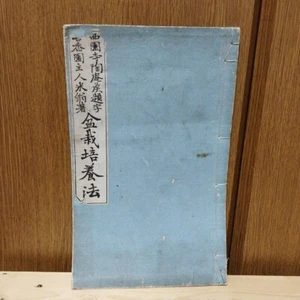 西園寺陶庵侯題字
香園主人米舫著
盆栽培養法